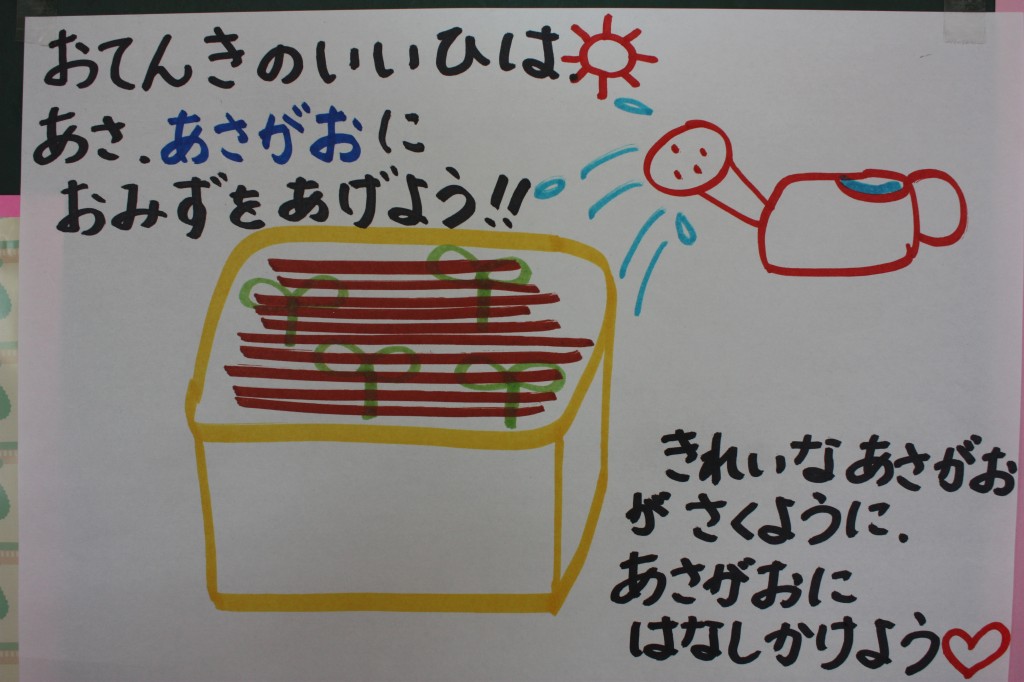 おてんきのいいひは、
あさ、あさがおに
おみずをあげよう!!
きれいなあさがお
がさくように、
あさがおに
はなしかけよう